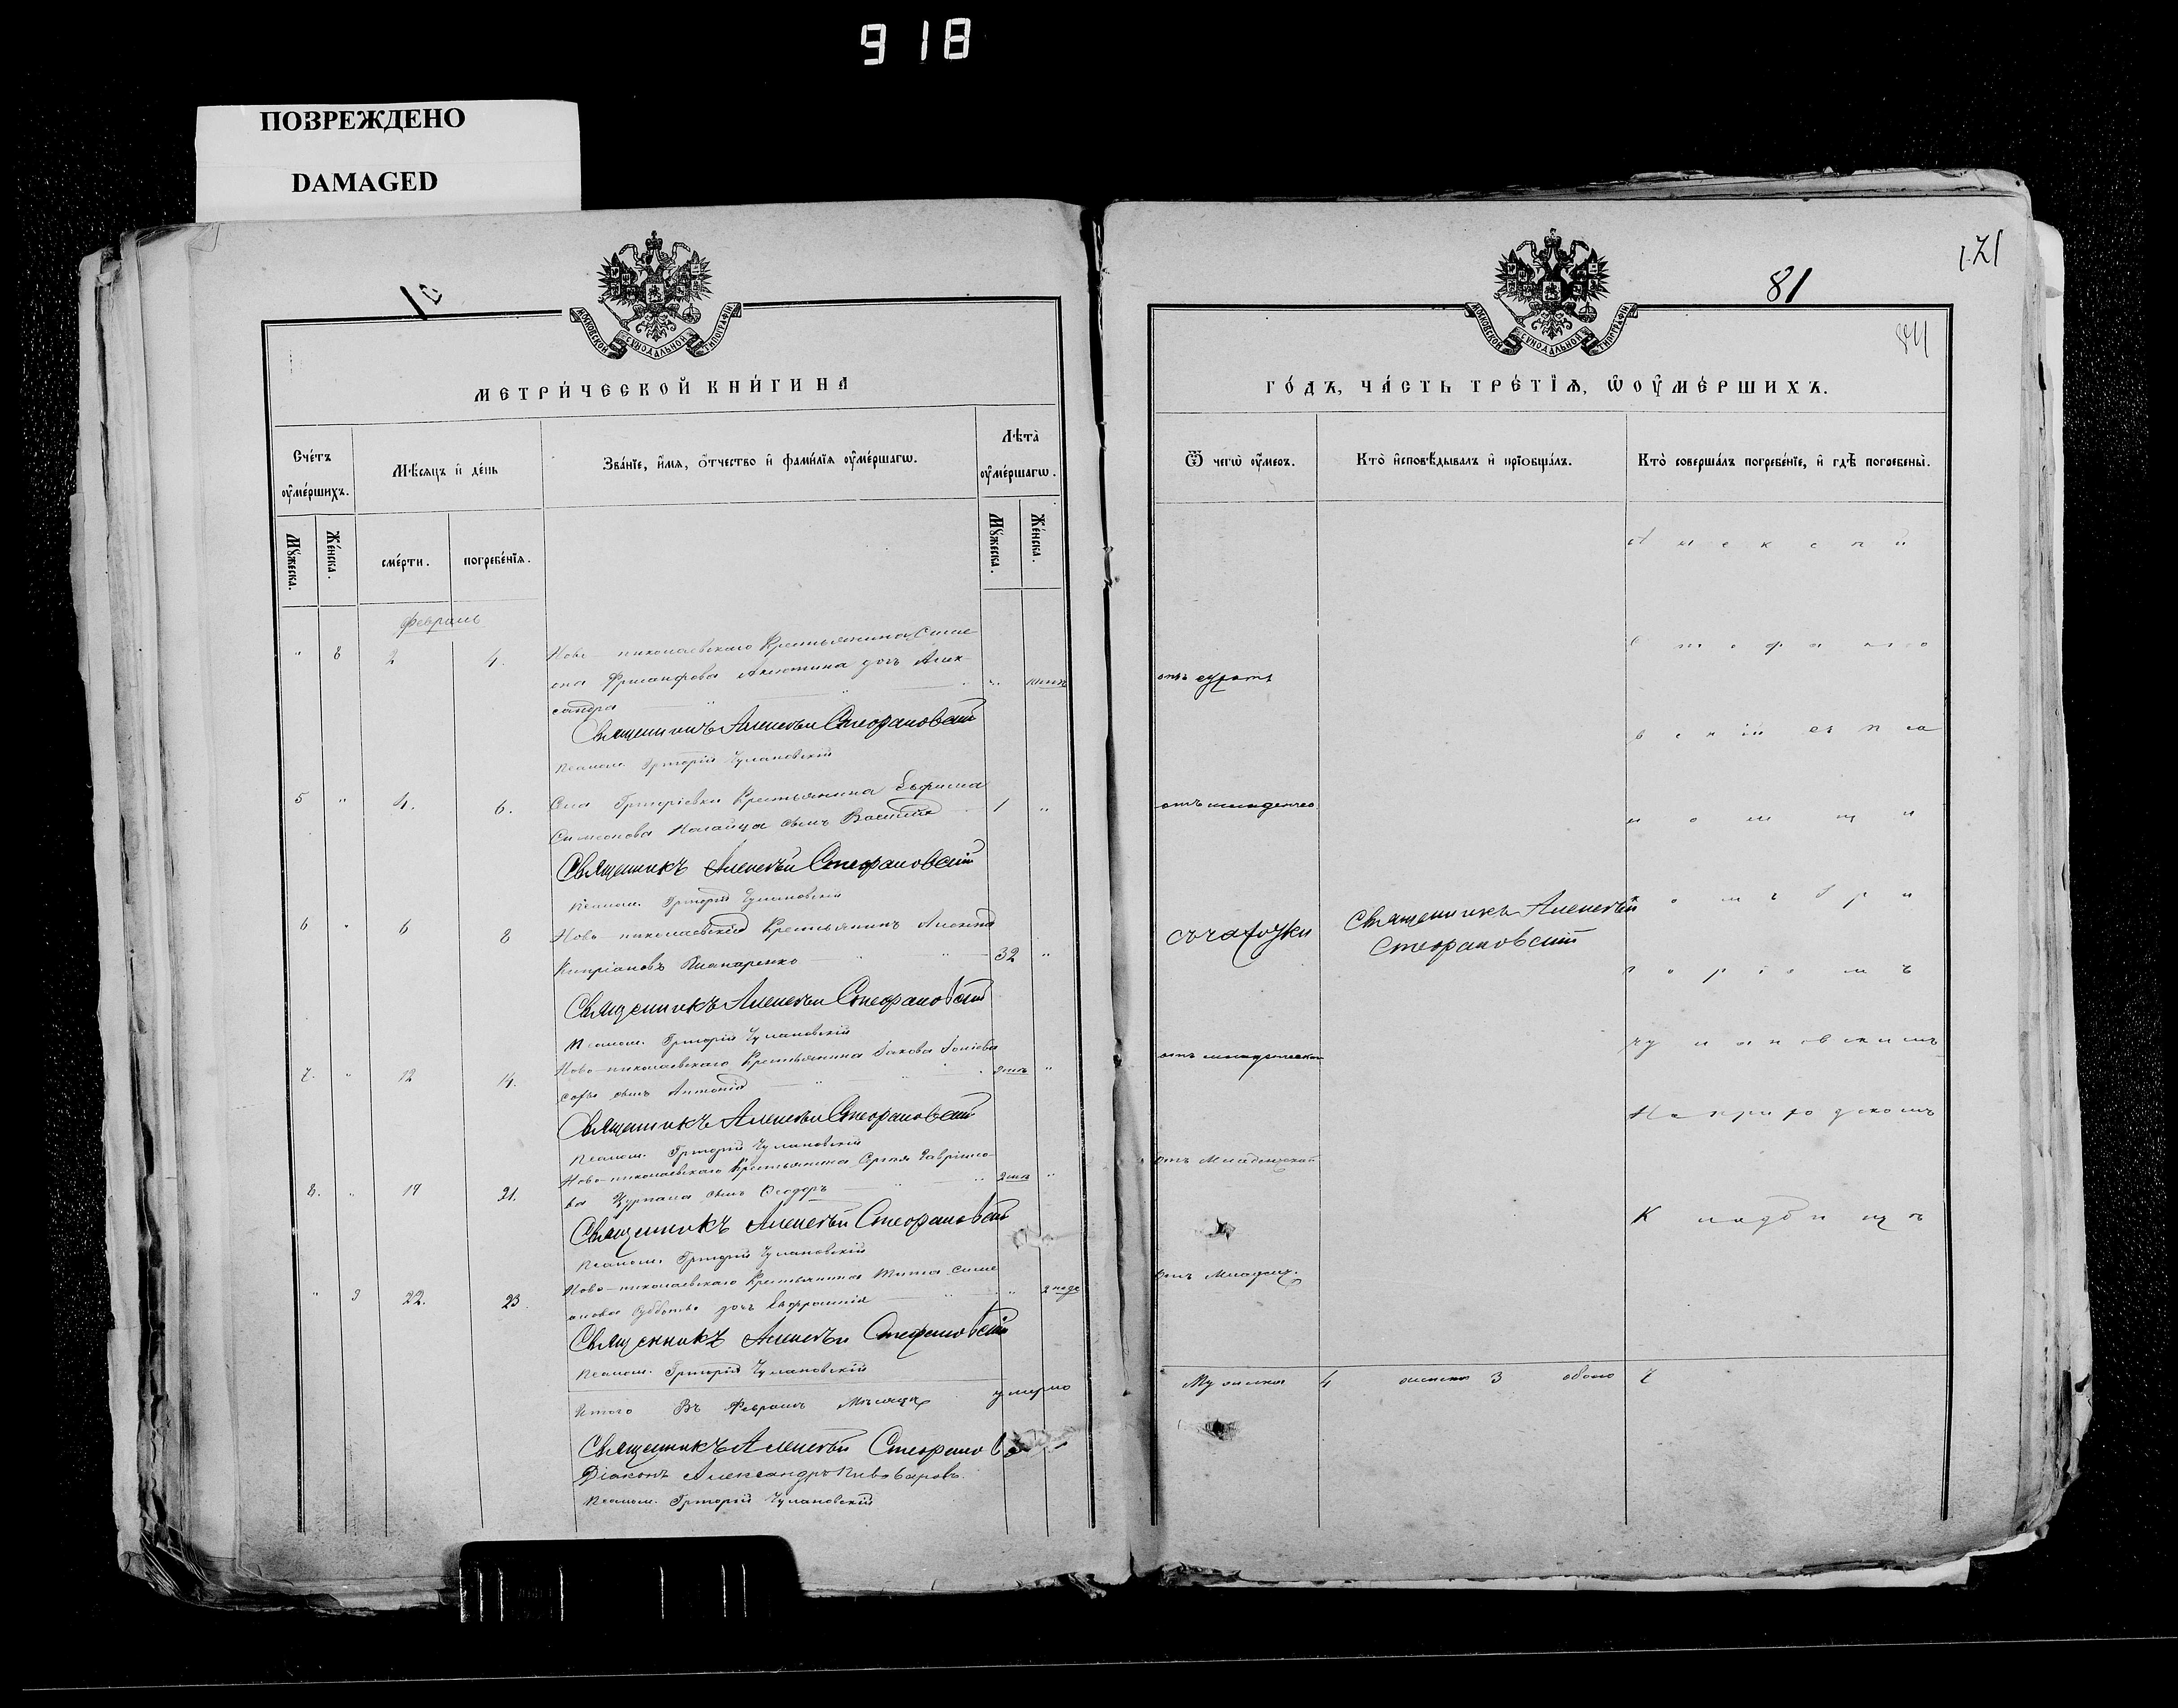 918
ПОВРЕЖДЕНО
DAMAGED
МОСКОВСКОЙ СѴНОДАЛЬНОЙ ТИПОГРАФІИ
МЕТРИ́ЧЕСКОЙ КНИ́ГИ НА
Сче́тъ оу҆ме́ршихъ.
Мѣ́сяцъ и҆ де́нь
Зва́нїе, и҆́мя, ѻ҆́тчество и҆ фами́лїя оу҆ме́ршагѡ.
Лѣта̀ оу҆ме́ршагѡ.
Мꙋ́жеска.
Же́нска.
сме́рти.
погребе́нїя.
Мꙋ́жеска.
Же́нска.
Февраль
" 8 2 4. Ново-николаевскаго Крестьянина Симе
она Акиш дочь Алек-
сандра
Священникъ Алексѣй Стефановскій
Псалом. Григорій Чулановскій
5 " 4. 6. Села Григорiевки Крестьянина Ефима
Симеонова сынъ Василій 1 "
Священникъ Алексѣй Стефановскій
Псалом. Григорій Чулановскій
6 " 6 8 Ново-николаевскій Крестьянинъ
Кипріановъ 32 "
Священникъ Алексѣй Стефановскій
Псалом. Григорій Чулановскій
7. " 12 14. Ново-николаевскаго Крестьянина Іакова
сынъ Антоній "
Священникъ Алексѣй Стефановскій
Псалом. Григорій Чулановскій
8. " 19 21. Ново-николаевскаго Крестьянина Сергія Гаврiило-
ва сынъ Ѳеодоръ "
Священникъ Алексѣй Стефановскій
Псалом. Григорій Чулановскій
" 9 22. 23. Ново-николаевскаго Крестьянина Тита Симе
онова дочь Евфросинія " 2 неде
Священникъ Алексѣй Стефановскій
Псалом. Григорій Чулановскій
Итого Въ Февралѣ Мѣсяцѣ умерло
Священникъ Алексѣй Стефанов
Діаконъ Александръ Пивоваровъ.
Псалом. Григорій Чулановскій
121
81
МОСКОВСКОЙ СѴНОДАЛЬНОЙ ТИПОГРАФІИ
ГО́ДЪ, ЧА́СТЬ ТРЕ́ТЇѦ, Ѽ ОУ҆МЕ́РШИХЪ.
Ѿ чегѡ̀ оу҆́меръ.
Кто̀ и҆сповѣ́дывалъ и҆ прїобща́лъ.
Кто̀ соверша́лъ погребе́нїе, и҆ гдѣ̀ погребены̀.
Алексѣй
Стефано
вскій съ пса
ломщи
комъ Гри
горіемъ
Чулановскимъ
На приходскомъ
Кладбищѣ
отъ
отъ младенчес
съ чахотки
Священникъ Алексѣй
Стефановскій
отъ младенческой
отъ Младенческой
отъ Младенч.
Мужеска 4 женска 3 обоего 7